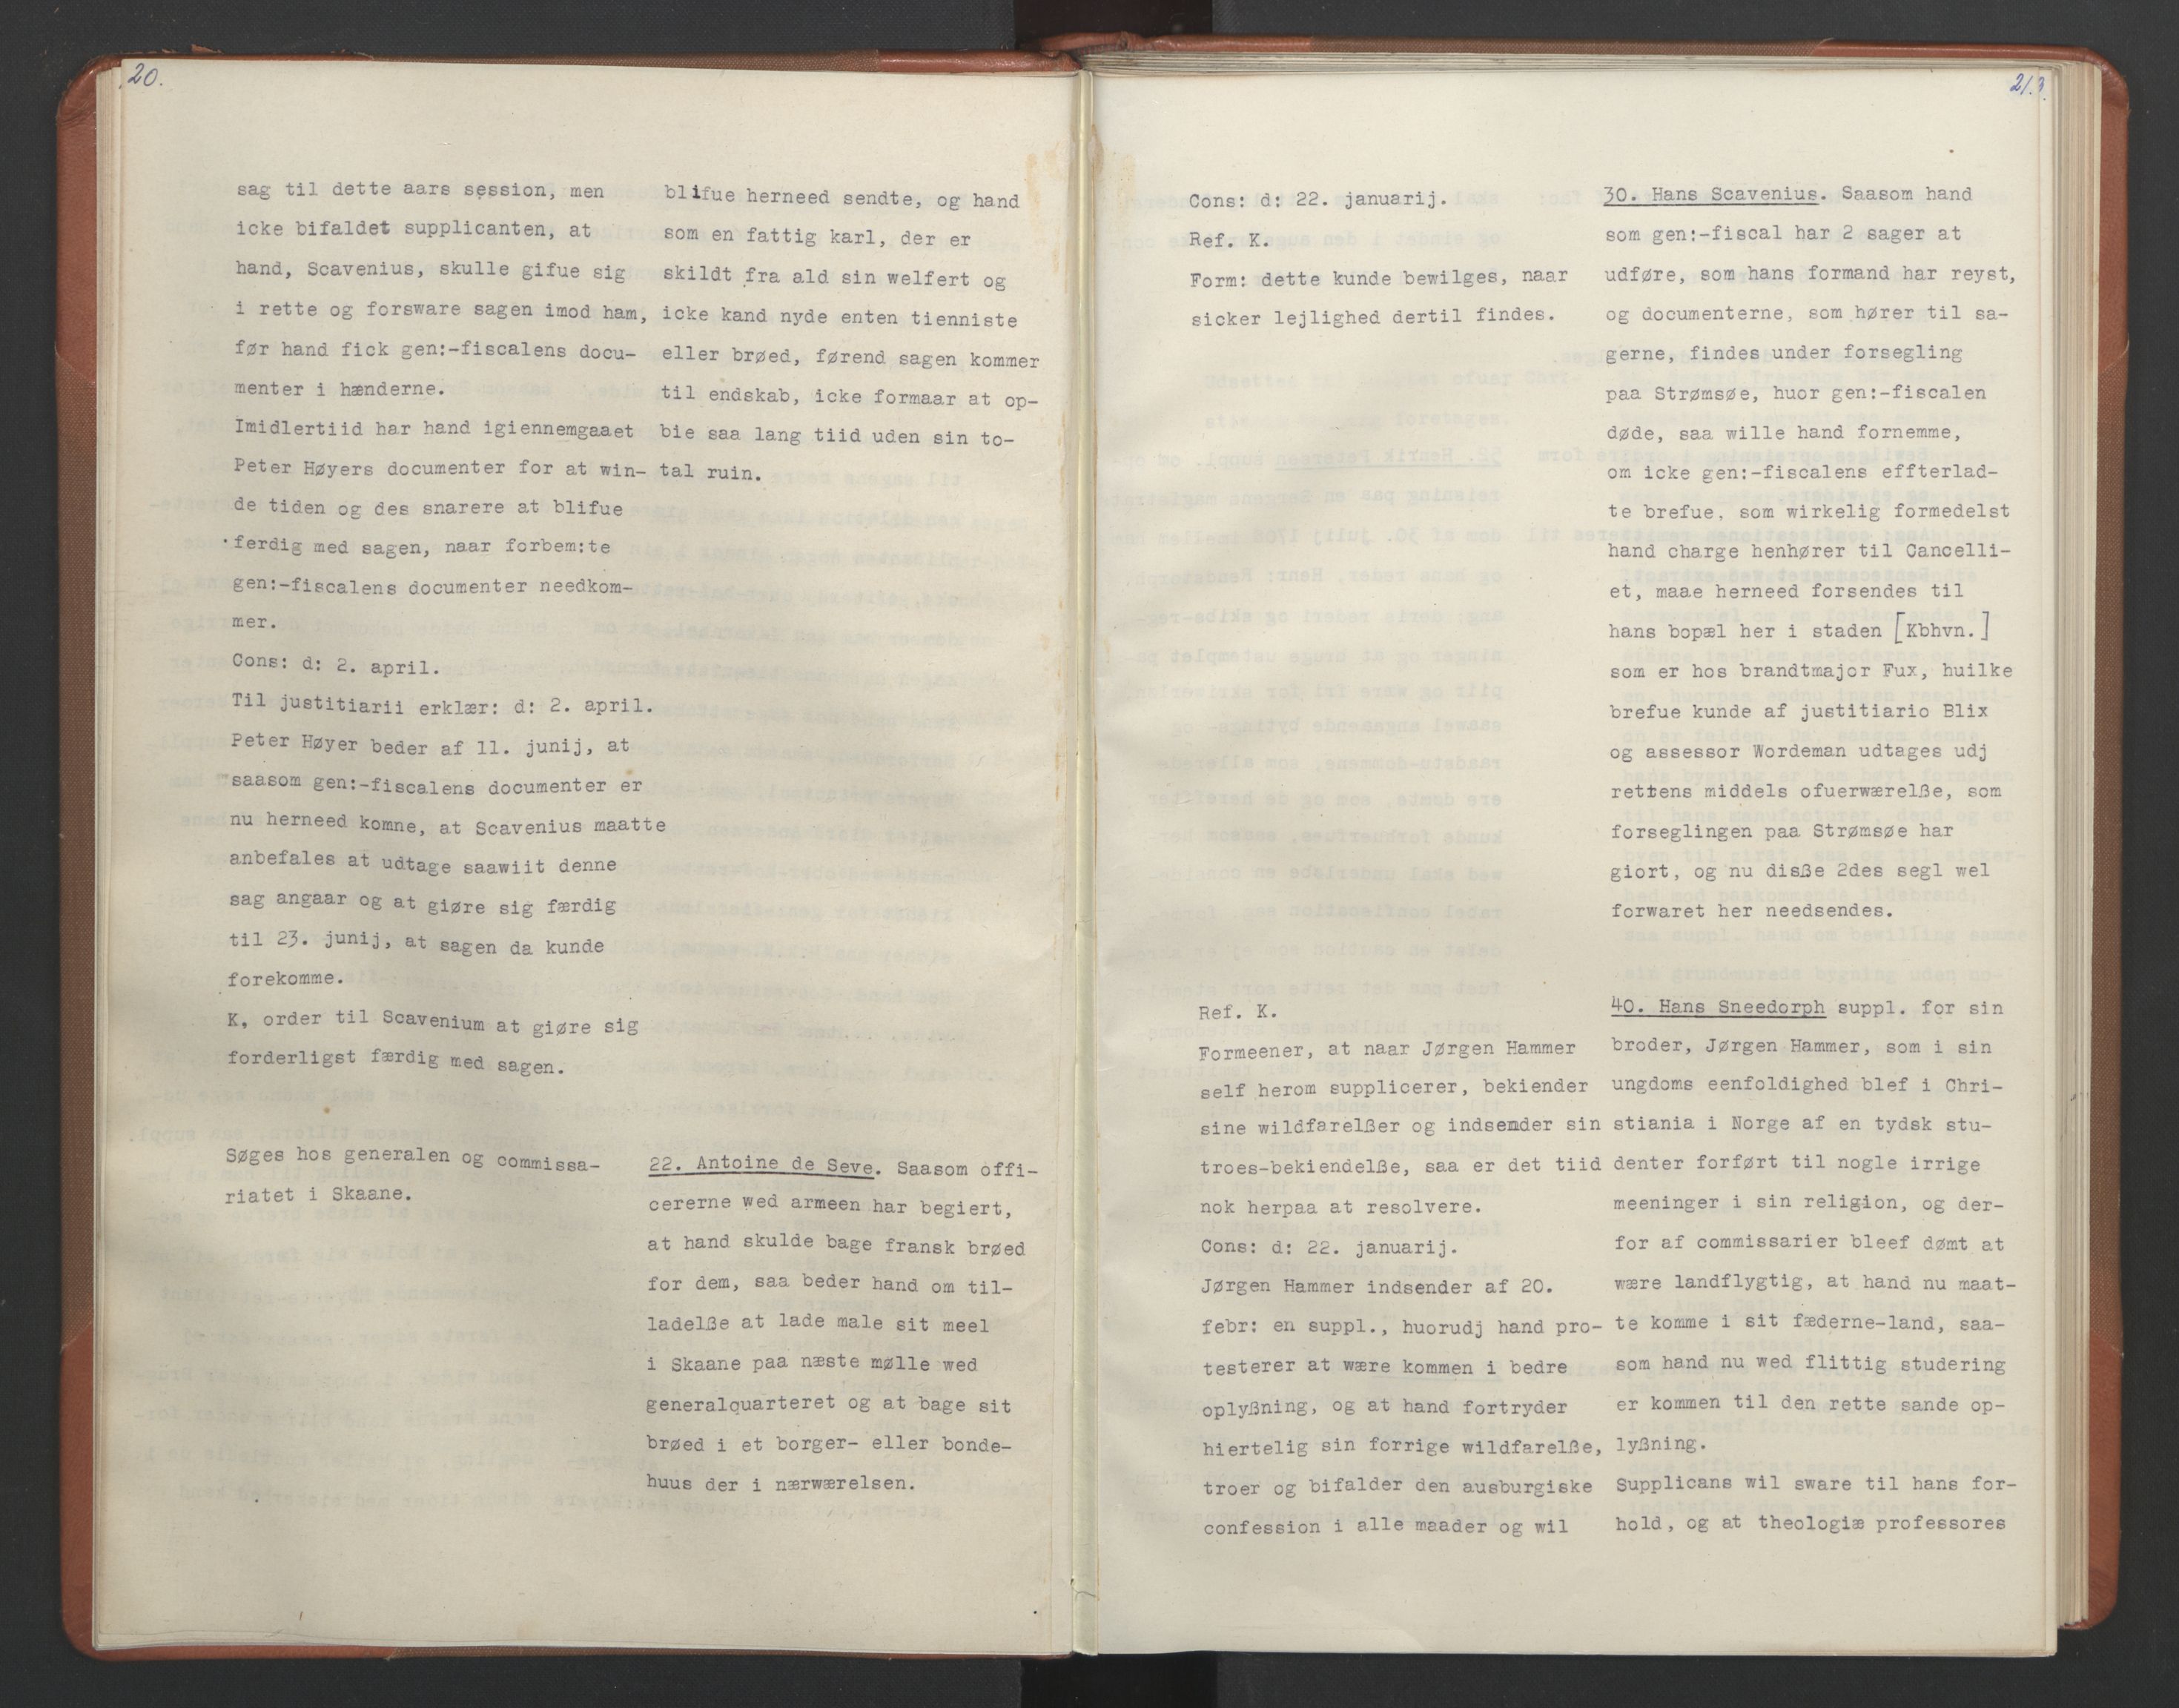 20.
sag til dette aars session, men
icke bifaldet supplicanten, at
hand, Scavenius, skulle gifue sig
i rette og forsware sagen imod ham,
før hand fick gen:-fiscalens docu-
menter i hænderne.
Imidlertiid har hand igiennemgaaet
Peter Høyers documenter for at win-
de tiden og des snarere at blifue
ferdig med sagen, naar forbem:te
gen:-fiscalens documenter needkom-
mer.
Cons: d: 2. april.
Til justitiarii erklær: d: 2. april.
Peter Høyer beder af 11. junij, at
saasom gen:-fiscalens documenter er
nu herneed komne, at Scavenius maatte
anbefales at udtage saawiit denne
sag angaar og at giøre sig færdig
til 23. junij, at sagen da kunde
forekomme.
K, order til Scavenium at giøre sig
forderligst færdig med sagen.
Søges hos generalen og commissa-
riatet i Skaane.
blifue herneed sendte, og hand
som en fattig karl, der er
skildt fra ald sin welfert og
icke kand nyde enten tienniste
eller brøed, førend sagen kommer
til endskab, icke formaar at op-
bie saa lang tiid uden sin to-
tal ruin.
22. Antoine de Seve. Saasom offi-
cererne wed armeen har begiert,
at hand skulde bage fransk brøed
for dem, saa beder hand om til-
ladelße at lade male sit meel
i Skaane paa næste mølle wed
generalquarteret og at bage sit
brøed i et borger- eller bonde-
huus der i nærwærelsen.
21.
Cons: d: 22. januarij.
Ref. K.
Form: dette kunde bewilges, naar
sicker lejlighed dertil findes.
Ref. K.
Formeener, at naar Jørgen Hammer
self herom supplicerer, bekiender
sine wildfarelßer og indsender sin
troes-bekiendelße, saa er det tiid
nok herpaa at resolvere.
Cons: d: 22. januarij.
Jørgen Hammer indsender af 20.
febr: en suppl., huorudj hand pro-
testerer at wære kommen i bedre
oplyßning, og at hand fortryder
hiertelig sin forrige wildfarelße,
troer og bifalder den ausburgiske
confession i alle maader og wil
30. Hans Scavenius. Saasom hand
som gen:-fiscal har 2 sager at
udføre, som hans formand har reyst,
og documenterne, som hører til sa-
gerne, findes under forsegling
paa Strømsøe, huor gen:-fiscalen
døde, saa wille hand fornemme,
om icke gen:-fiscalens effterlad-
te brefue, som wirkelig formedelst
hand charge henhører til Cancelli-
et, maae herneed forsendes til
hans bopæl her i staden [Kbhvn.]
som er hos brandtmajor Fux, huilke
brefue kunde af justitiario Blix
og assessor Wordeman udtages udj
rettens middels ofuerwærelße, som
forseglingen paa Strømsøe har
giort, og nu disße 2des segl wel
forwaret her needsendes.
40. Hans Sneedorph suppl. for sin
broder, Jørgen Hammer, som i sin
ungdoms eenfoldighed blef i Chri-
stiania i Norge af en tydsk stu-
denter forført til nogle irrige
meeninger i sin religion, og der-
for af commissarier bleef dømt at
wære landflygtig, at hand nu maat-
te komme i sit fæderne-land, saa-
som hand nu wed flittig studering
er kommen til den rette sande op-
lyßning.
Supplicans wil sware til hans for-
hold, og at theologiæ professores